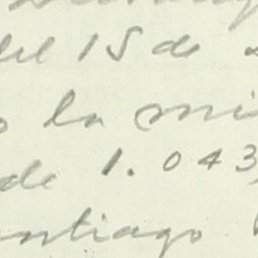 del 15 de
la mi
de 1.043,
ntiago